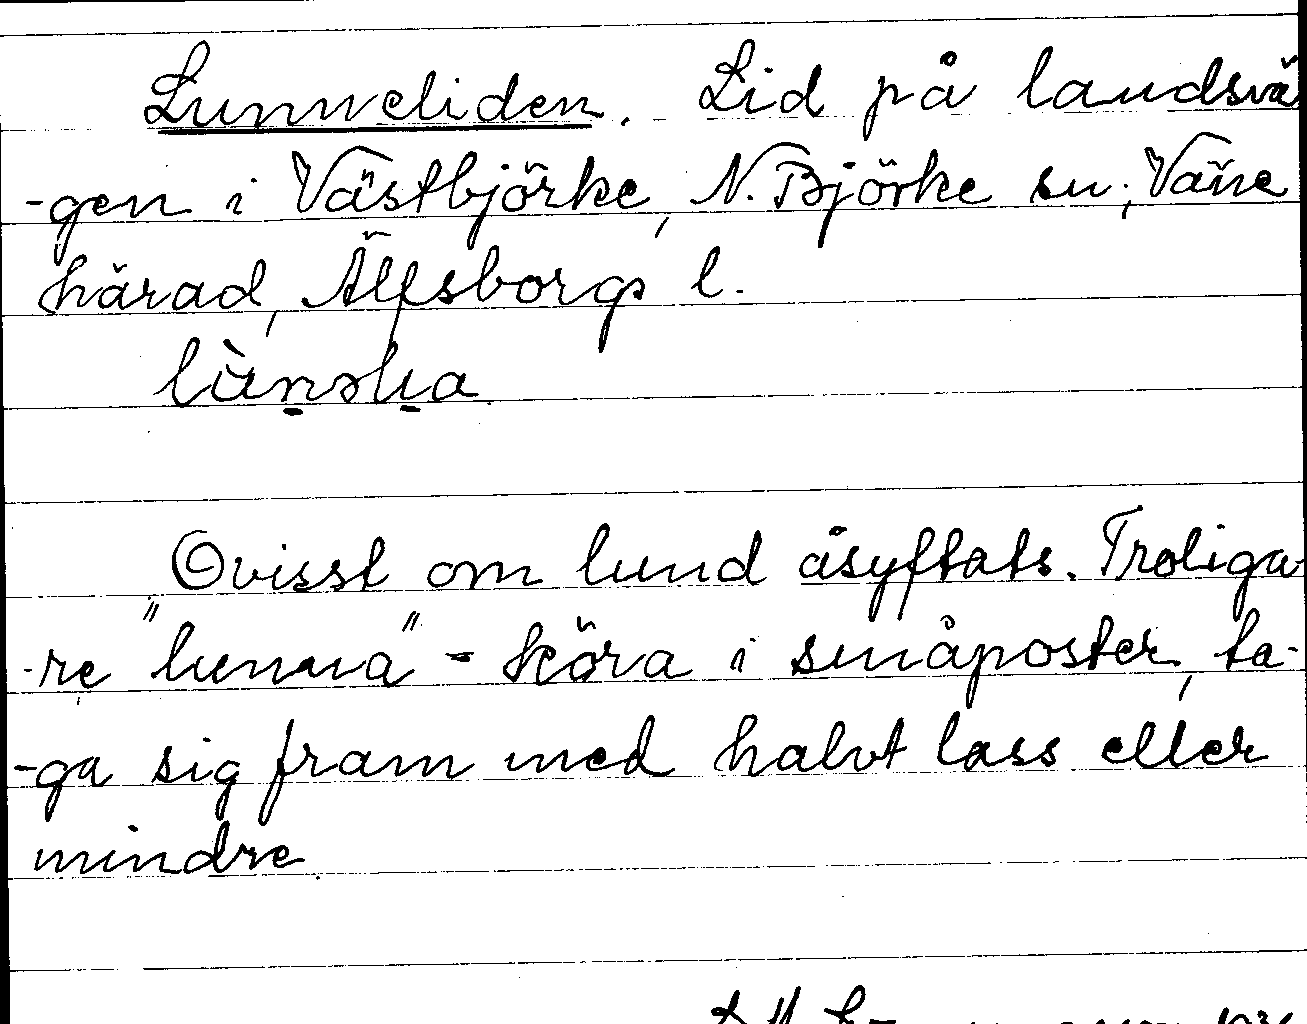 Lunneliden. Lid på landsvä
-gen i Västbjörke, N. Björke sn; Väne
härad, Älfsborgs l.

Ovisst om lund åsyftats. Troliga-
-re "lunna" - köra i småposter, ta-
-ga sig fram med halvt lass eller
mindre.